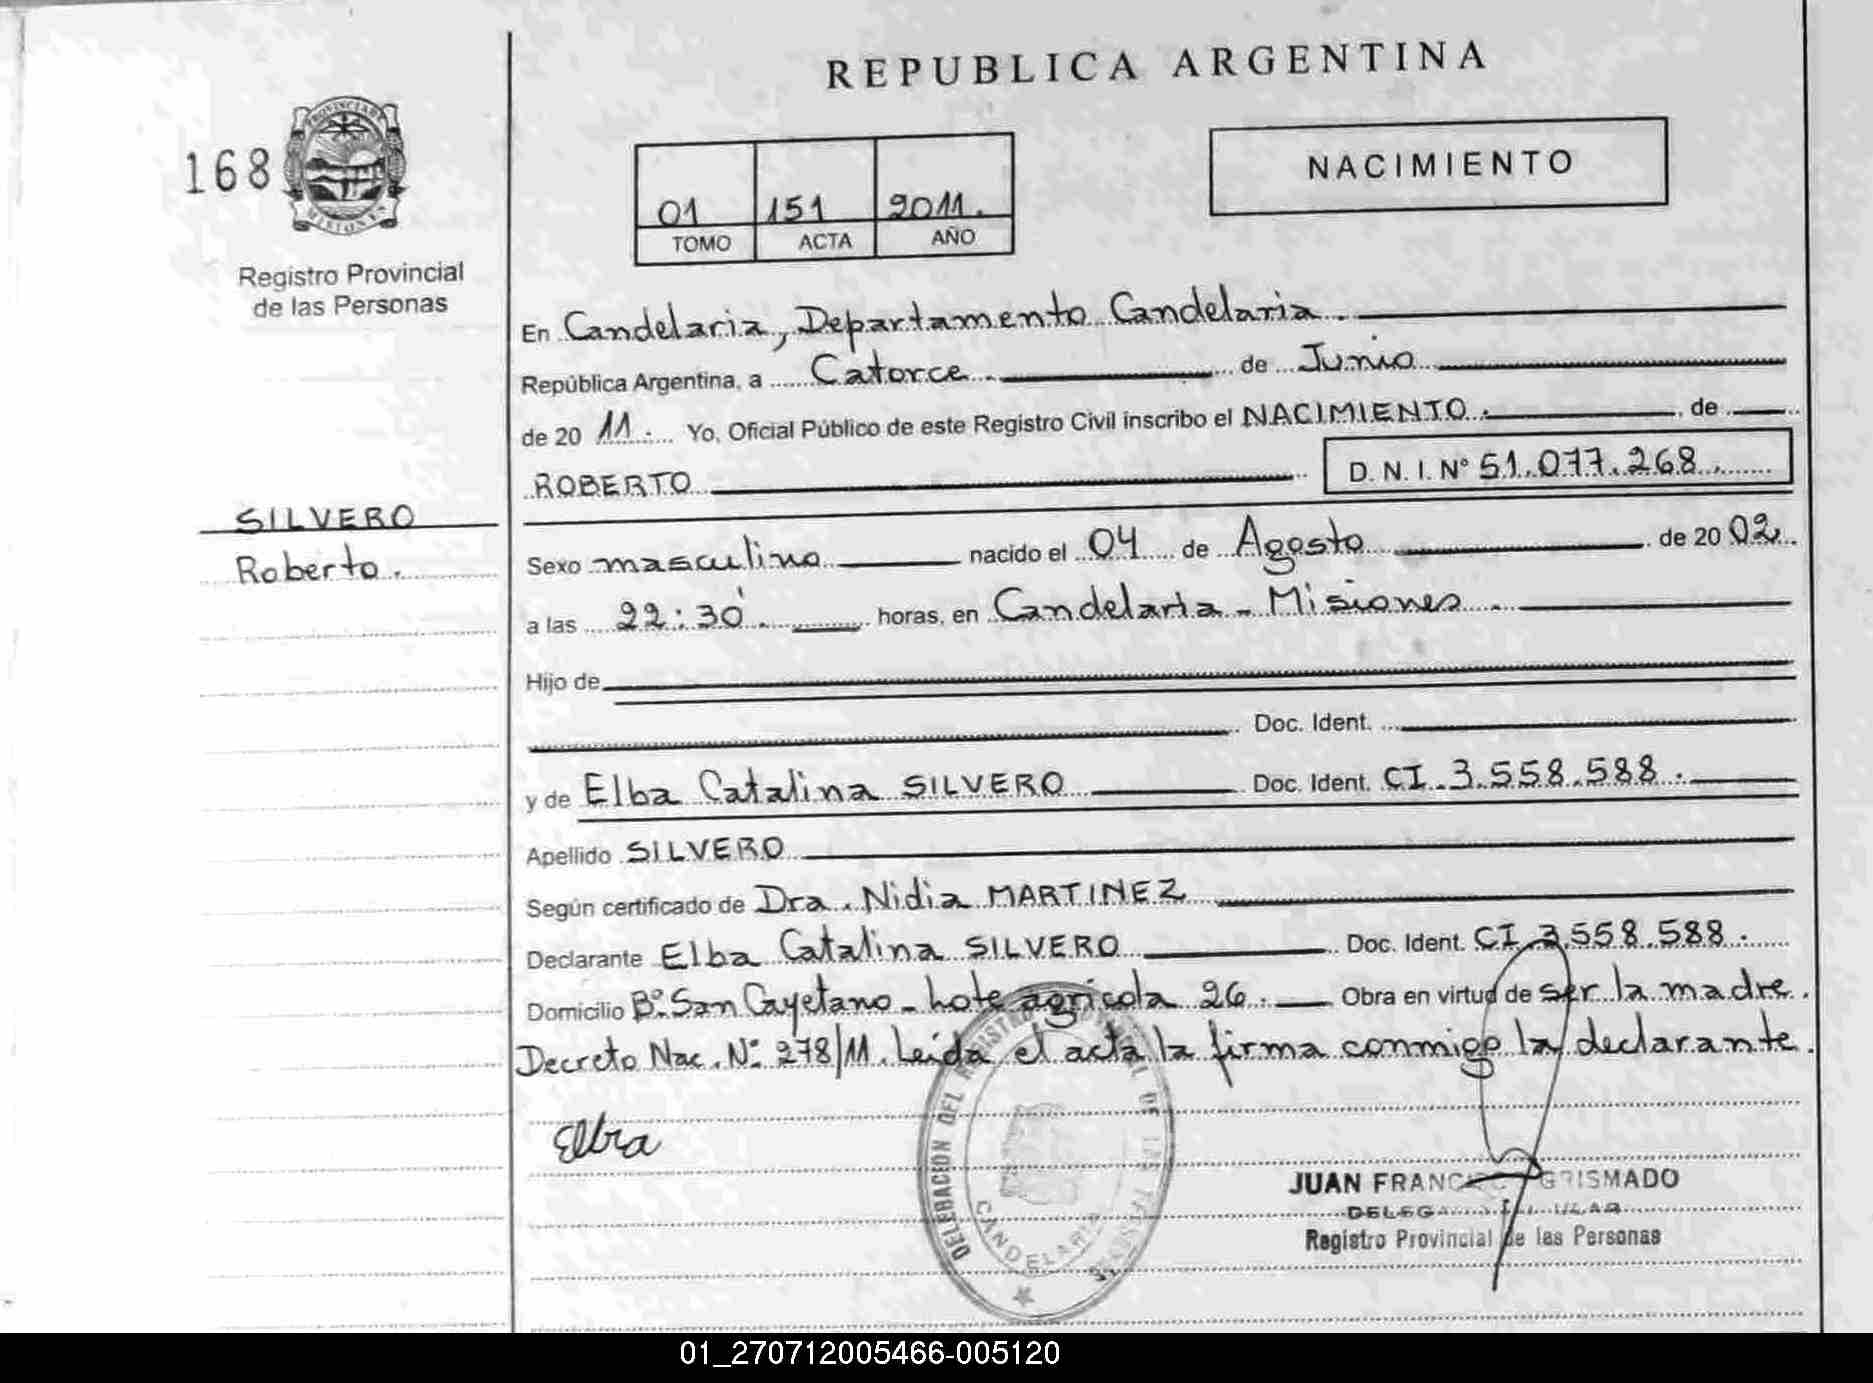 REPUBLICA ARGENTINA
168
PROVINCIA DE
MISIONES
Registro Provincial
de las Personas
01 151 2011.
TOMO ACTA AÑO
NACIMIENTO
En Candelaria, Departamento Candelaria.
República Argentina, a Catorce. de Junio
de 20 11. Yo, Oficial Público de este Registro Civil inscribo el NACIMIENTO. de
ROBERTO D. N. I. N° 51.077.268.
SILVERO
Roberto.
Sexo masculino nacido el 04 de Agosto de 20 02.
a las 22:30'. horas, en Candelaria - Misiones.
Hijo de
Doc. Ident.
y de Elba Catalina SILVERO Doc. Ident. CI. 3.558.588.
Apellido SILVERO
Según certificado de Dra. Nidia MARTINEZ
Declarante Elba Catalina SILVERO Doc. Ident. CI. 3.558.588.
Domicilio B° San Cayetano - Lote agricola 26. Obra en virtud de ser la madre.
Decreto Nac. N° 278/11. Leída el acta la firma conmigo la declarante.
Elba
DELEGACION DEL REGISTRO PROVINCIAL DE LAS PERSONAS
CANDELARIA
JUAN FRANCISCO GRISMADO
DELEGADO TITULAR
Registro Provincial de las Personas
01_270712005466-005120